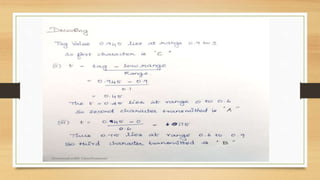 Decoding
Tag Value 0.945 lies at range 0.9 to 1
So first character is "C"
(ii) t = tag - low range
Range
= 0.945 - 0.9
0.1
= 0.45
The t = 0.45 lies at range 0 to 0.6
So second character transmitted is "A"
(iii) t = 0.45 - 0
0.6
= 0.75
Thus 0.75 lies at range 0.6 to 0.9
So third character transmitted is "B"